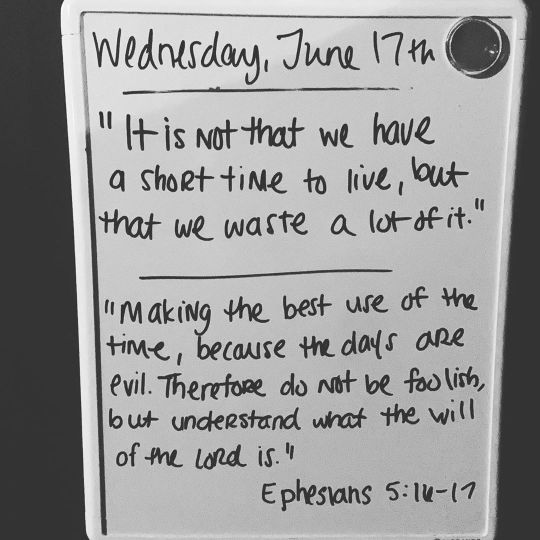 Wednesday, June 17th
"It is not that we have
a short time to live, but
that we waste a lot of it."
"Making the best use of the
time, because the days are
evil. Therefore do not be foolish,
but understand what the will
of the Lord is."
Ephesians 5:16-17